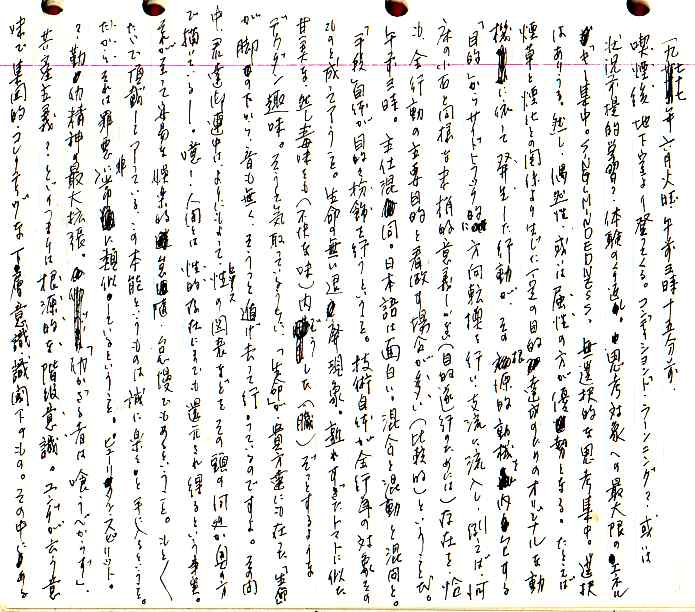 一九七七年六月火曜 午前三時十五分前。
喫煙後、地下室より登ってくる。コンディションド・ラーンニング？或は
状況前提的学習？体験のくり返し。思考対象への最大限のエネル
ギー集中。SINGLEMINDEDNESS. 無選択的な思考集中。選択
はあり得る。然し偶然性、或は属性の方が優勢となる。たとえば
煙草と煙との関係よりはじめに一定の目的を達成のためのオリジナルな動
機に依って発生した行動が、その根源的動機を内包する
「目的」からサイドトラック的に方向転換を行い支流に流入し、例えば河
床の小石と同様な末梢的意義しかない（目的遂行のためには）存在を、恰
も、全行動の主要目的と看做す場合が多い（比較的）ということだ。
午前三時。主仕混同。日本語は面白い。混合と混動と混同と。
「手段」自体が目的を扮飾を行うということ。技術自体が全行為の対象その
ものと成ってしまう。生命の無い退廃現象。熟れすぎたトマトに似た
甘美な、然し毒味をも（不快な味）内 した（臓）ぞっとするような
デカダン趣味。そうだ、気取っていようたって、「生命」が貴方達にも在る「生命」
が脚の下から、音も無く、そうっと逃げ去って行っているのですよ。その間
中、君達 連中はよりにもよって性の図表などをその頭の何処か図の方
で描いている！。噫！人間とは性的存在にまでも還元され得るという事実。
そしてまことに容易な、怪楽的怠随、怠慢でもあるということ。もともと
ただで頂戴してしまっている、この本能というものは誠に楽しと、手に入るということ。
だから、それは罪悪に非常に類似しているということ。ピューリタン・スピリット。
？勤労的精神の最大拡張。「働かざる者は喰うべからず」。
共産主義？というのは根源的な階級意識。ユングが云う意
味で集団的、コレクティヴな下層意識、識閾下のもの。その中にある